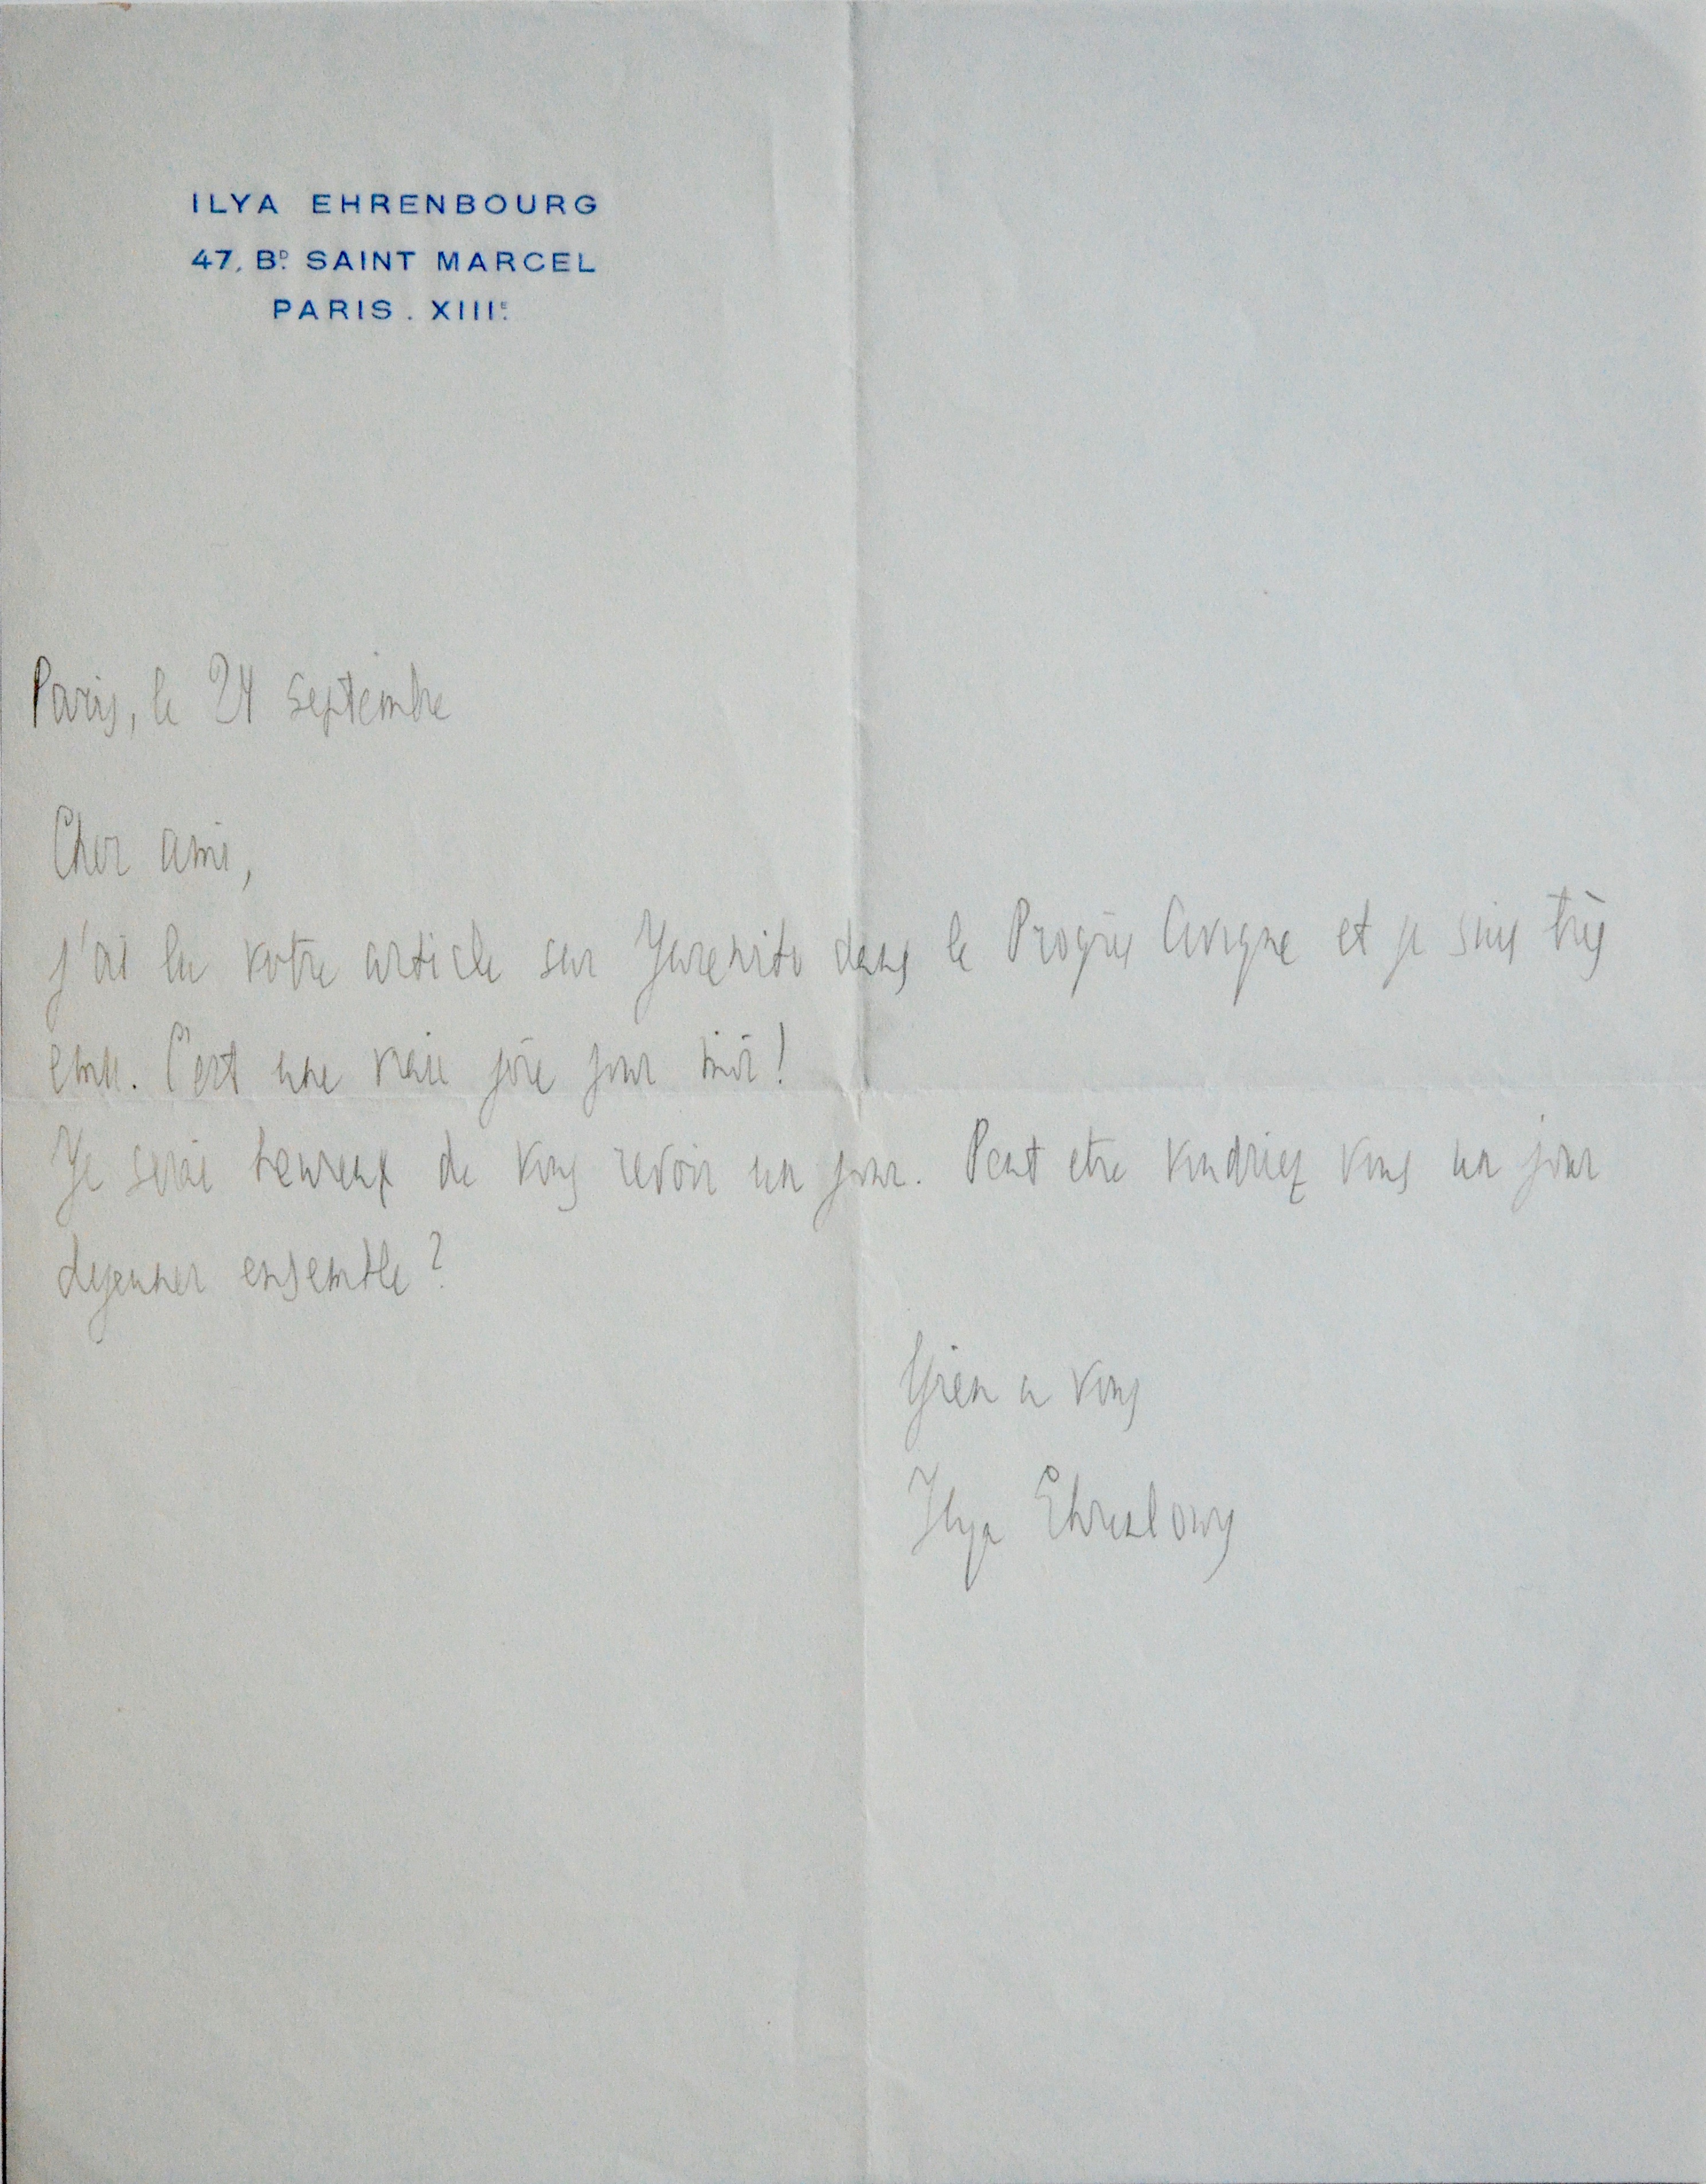 ILYA EHRENBOURG
47, Bᴰ. SAINT MARCEL
PARIS. XIIIᴱ.
Paris, le 24 septembre
Cher ami,
j'ai lu votre article sur Jurenito dans le Progrès Civique et je suis très
emu. C'est une vraie joie pour moi!
Je serai heureux de vous revoir un jour. Peut etre voudriez vous un jour
dejeuner ensemble?
Bien a vous
Ilya Ehrenbourg